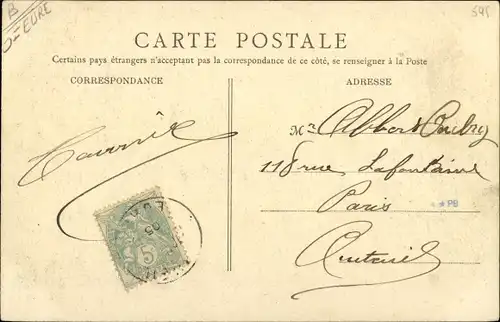 B
D-EURE
545
CARTE POSTALE
Certains pays étrangers n'acceptant pas la correspondance de ce côté, se renseigner à la Poste
CORRESPONDANCE
ADRESSE
Mr Albert
118 rue Lafontaine
Paris
PB
Auteuil
5